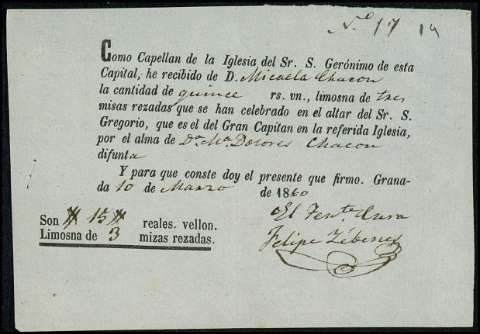 N.º 17 19
Como Capellan de la Iglesia del Sr. S. Gerónimo de esta
Capital, he recibido de D. Micaela Chacon
la cantidad de quince rs. vn., limosna de tres
misas rezadas que se han celebrado en el altar del Sr. S.
Gregorio, que es el del Gran Capitan en la referida Iglesia,
por el alma de D.ª M.ª Dolores Chacon
difunta
Y para que conste doy el presente que firmo. Grana-
da 10 de Marzo de 1860
El Ten.te Cura
Son # 15 # reales. vellon.
Felipe
Limosna de 3 mizas rezadas.